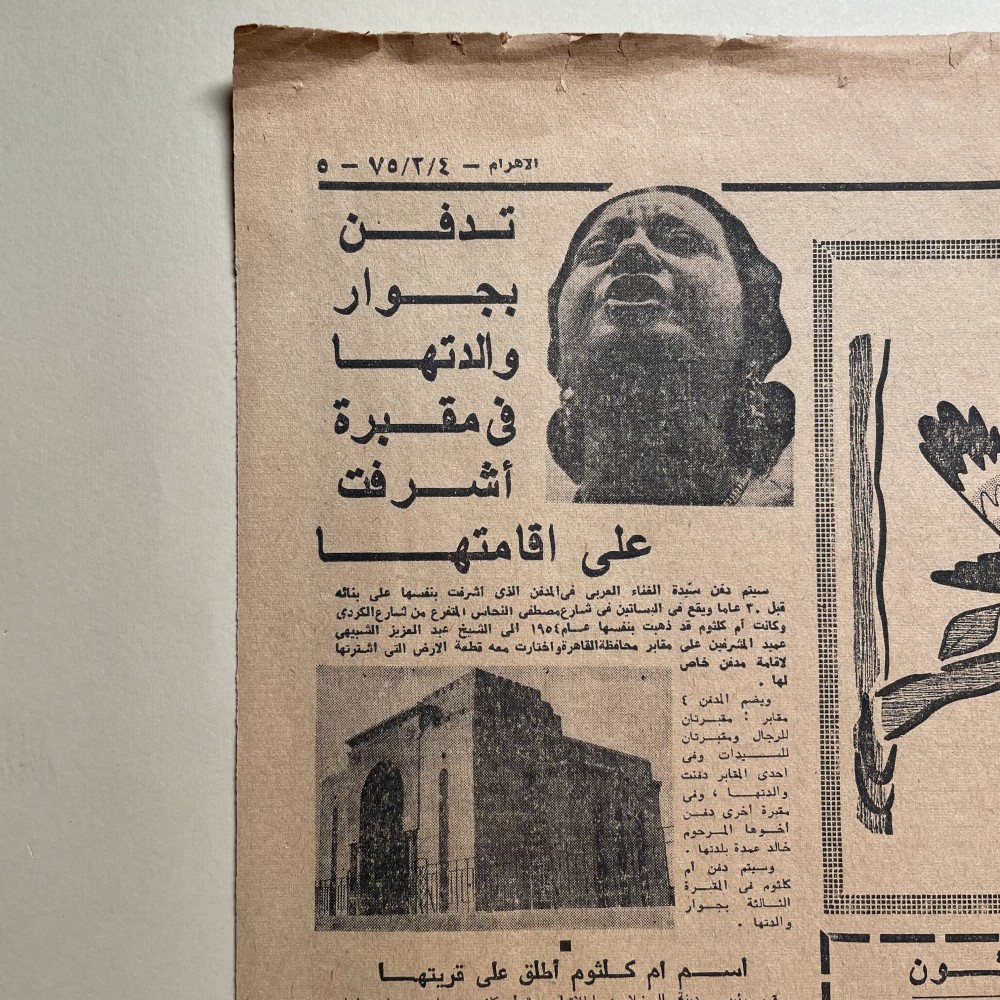 الاهرام — ٧٥/٢/٤ — ٥
تدفن
بجوار
والدتها
فى مقبرة
أشرفت
على اقامتها
سيتم دفن سيّدة الغناء العربى فى المدفن الذى أشرفت بنفسها على بنائه
قبل ٣٠ عاما ويقع فى البساتين فى شارع مصطفى النحاس المتفرع من شارع الكردى
وكانت أم كلثوم قد ذهبت بنفسها عام ١٩٥٤ الى الشيخ عبد العزيز الشبيهى
عميد المشرفين على مقابر محافظة القاهرة واختارت معه قطعة الارض التى اشترتها
لاقامة مدفن خاص
لها .
ويضم المدفن ٤
مقابر : مقبرتان
للرجال ومقبرتان
للسيدات وفى
احدى المقابر دفنت
والدتها ، وفى
مقبرة أخرى دفن
أخوها المرحوم
خالد عمدة بلدتها .
وسيتم دفن أم
كلثوم فى المقبرة
الثالثة بجوار
والدتها .
أسم ام كلثوم أطلق على قريتها